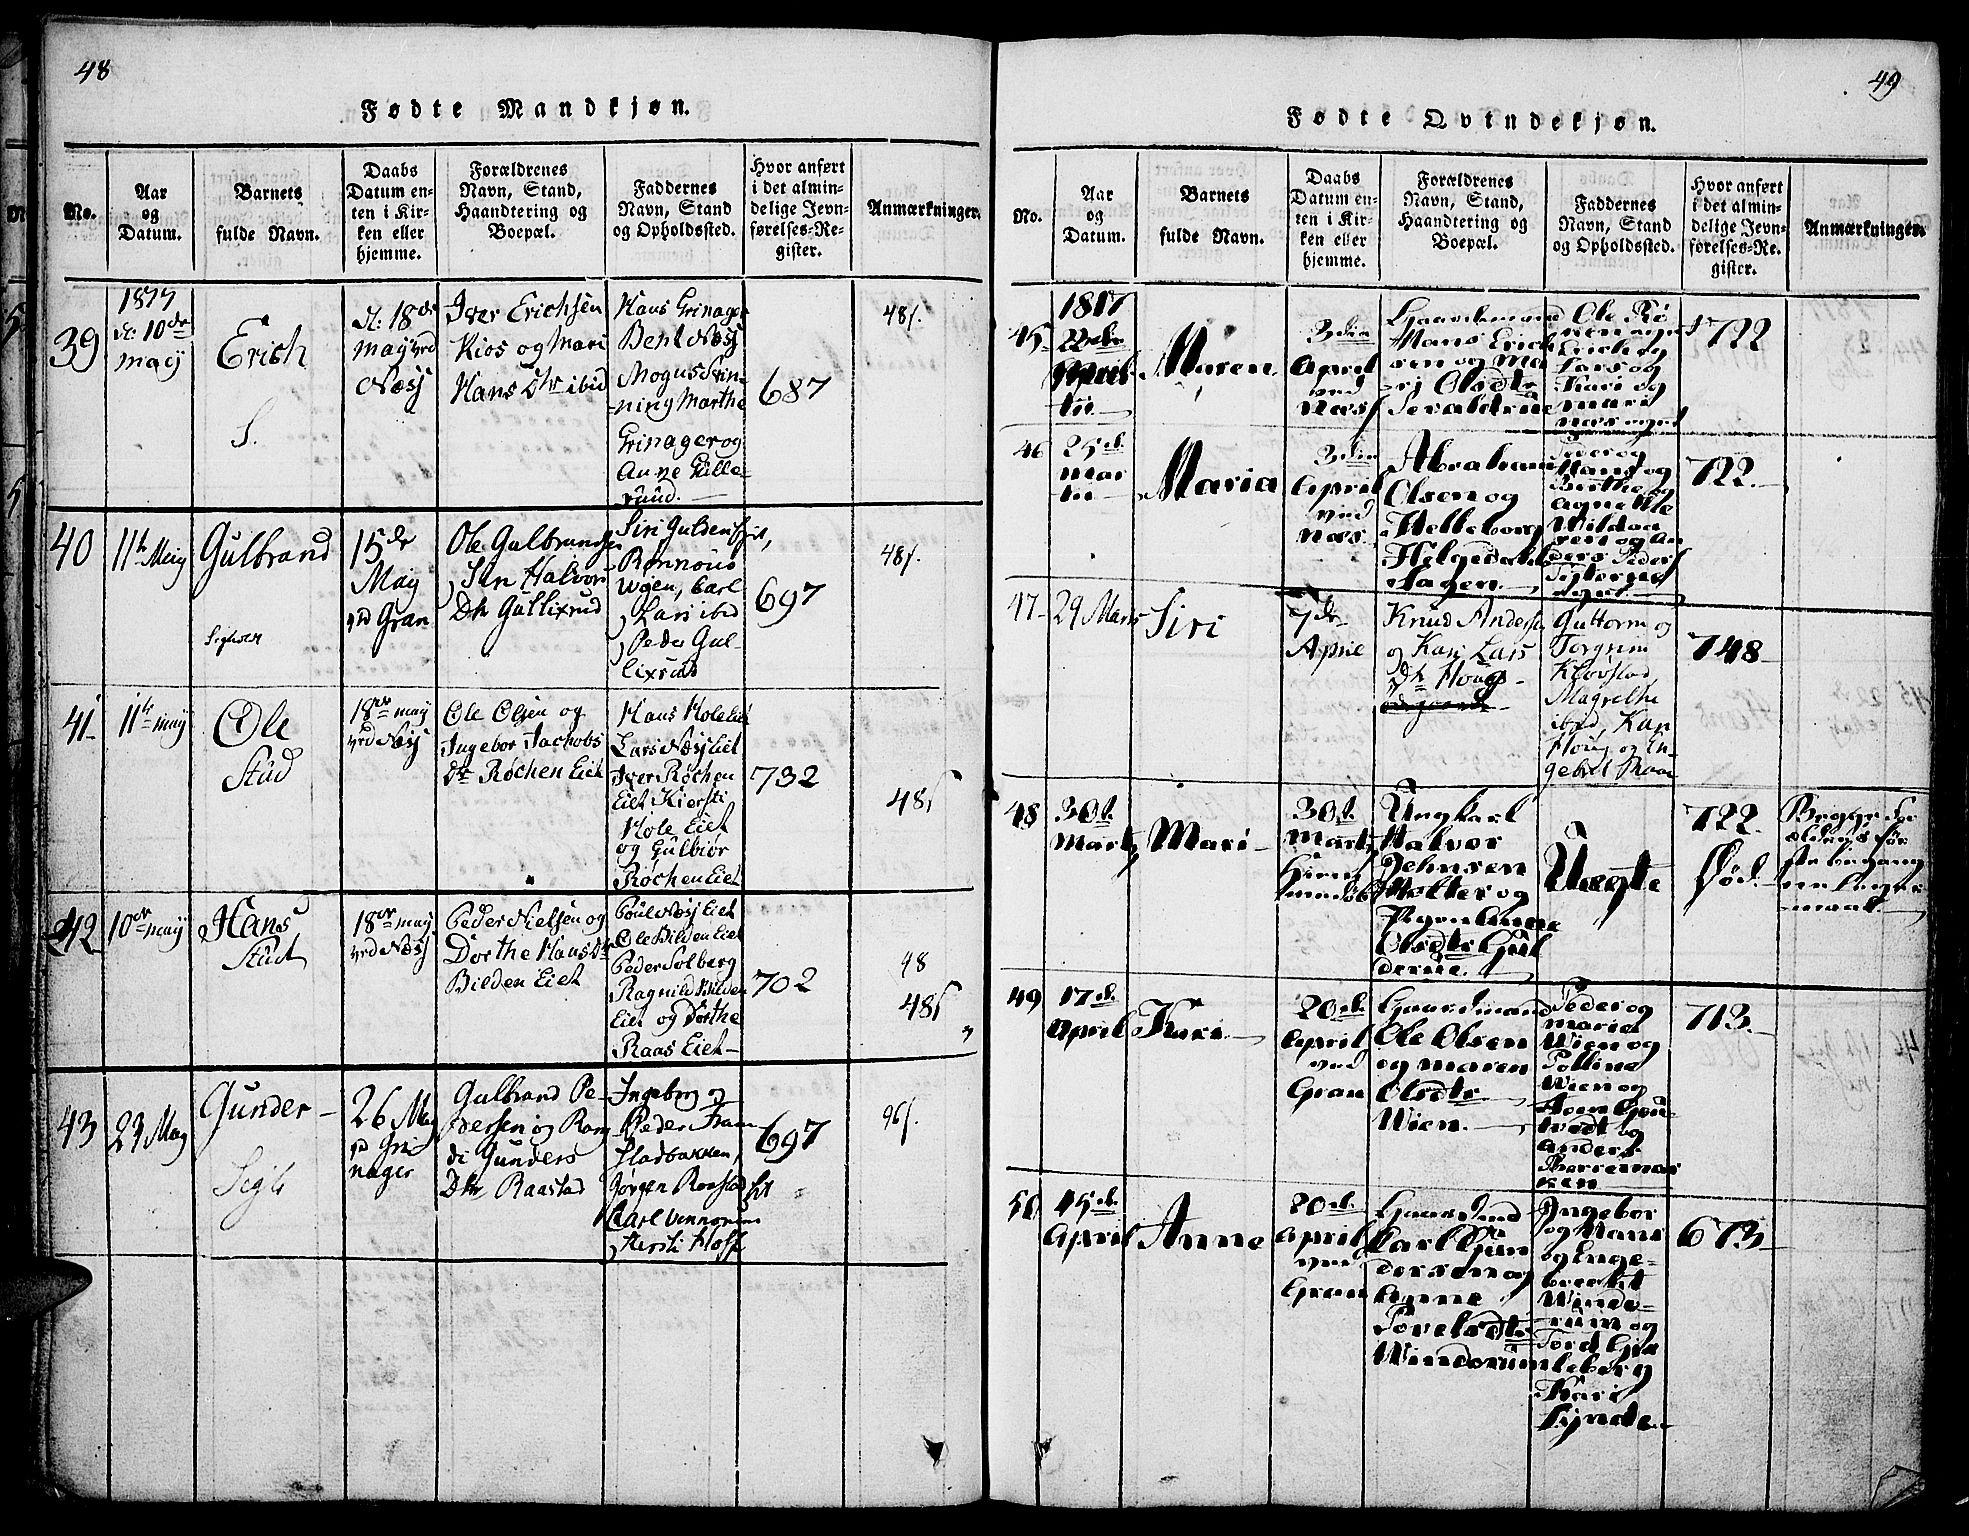 48
Fødte Mandkjøn.
No.
Aar
og
Datum.
Barnets
fulde Navn.
Daabs
Datum en-
ten i Kir-
ken eller
hjemme.
Forældrenes
Navn, Stand,
Haandtering og
Boepæl.
Faddernes
Navn, Stand
og Opholdssted.
Hvor anført
i det almin-
delige Jevn-
førelses-Re-
gister.
Anmærkninger.
39
1817
d: 10de
maij
Erich
S.
d: 18de
maij vrd
Næsj
Iver Erichsen
Kios og Mari
Hans Dtr ibid
Hans Grinager
Bent Næsj
Mogus Svin-
ning Marthe
Grinager og
Anne Gulle-
ruud.
687
48/.
40
11te Maij
Gulbrand
15de
Maij
vd Gran
Ole Gulbrands
Halvor
Dtr Gullixrud
Siri Gulsen
Rønnoug
Woen, Carl
Lars ibid
Peder Gul-
lixrud
697
48/.
41
11te maij
Ole
Stüd
18de maij
vrd Næsj
Ole Olsen og
Ingebor Jachobs
Dtr Røchen Eiet
Hans Hole Eiet
Lars Næsj Eiet
Iver Røchen
Eiet Kiersti
Hole Eiet
og Gulbiør
Røchen Eiet
732
48/
42
10de maij
Hans
Stüd
18de maij
vrd Næsj
Peder Nielsen og
Dorthe Hans Dtr
Bilden Eiet
Poul Næsj Eiet
Ole Bilden Eiet
Peder Solberg
Ragnild Bilden
Eiet og Dorthe
Raas Eiet
702
98
48/
43
23 Maij
Gunder
26 Maij
vd Gri
nager
Gulbrand Pe-
dersen og Ran
di Gunders
Dtr Raastad
Ingeborg og
Peder Fram
stadbakken,
Jørgen Raastad
Carl Vennorum
Kersti Hoff
697
96/.
49
Fødte Qvindekjøn.
No.
Aar
og
Datum.
Barnets
fulde Navn.
Daabs
Datum en-
ten i Kir-
ken eller
hjemme.
Forældrenes
Navn, Stand,
Haandtering og
Boepæl.
Faddernes
Navn, Stand
og Opholdssted.
Hvor anført
i det almin-
delige Jevn-
førelses-Re-
gister.
Anmærkninger.
45
1817
Maren
3die
April
ved
Næs
Hans Erich
sen og Ma
ri Olsdtr
Ole
Erich og
Lars og
Kari og
Mari
722
46
25d.
Mar
tii
Maria
3die
April
ved
Næs
Abraham
Olsen og
Helleborg
Helgedatter
Hagen.
Iver og
Hans og
Berthe og
Agnethe
722.
47
29 Marts
Siri
7de
April
Knud Anders
og Kari Lars
Dtr Houg
Guttorm og
Torgrim
Kløvstad
Magrethe
ibid, Kari
Houg og En-
gebret Raan
748
48
30d.
Marts
Mari
30d.
Marts
Ungkarl
Halvor
Johnsen
Molter og
Pigen Anne
Olsdtr
Uægte
722.
Død.
Begge For
ældrenes før
ste begang
ne Leyer
maal.
49
17d.
April
Kari
20d.
April
ved
Gran
Gaardmand
Ole Olsen
og Maren
Olsdtr
Wien.
Peder og
Marie
Wien og
Polline
Wien og
Anders
713.
50
15d.
April
Anne
20d.
April
ved
Gran
Carl Gun
dersen og
Anne
Povelsdtr
Windorum
Ingebor
og Hans
og Enge-
brecht
Windo-
rum og
Tord Gis
leberg
Kari
Lynde
673